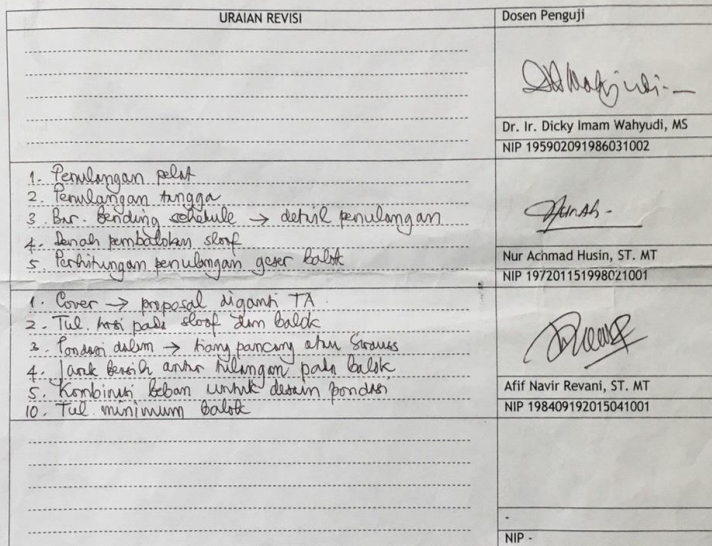 URAIAN REVISI
Dosen Penguji
Dr. Ir. Dicky Imam Wahyudi, MS
NIP 195902091986031002
1. Penulangan pelat
2. Penulangan tangga
3 Bar. Bending schedule → detail penulangan
4. Denah pembalokan sloof
5 Perhitungan penulangan geser balok
Nur Achmad Husin, ST. MT
NIP 197201151998021001
1. Cover → proposal diganti TA
2. Tul. torsi pada sloof dan balok
3. Pondasi dalam → tiang pancang atau Strauss
4. Jarak bersih antar tulangan pada balok
5. Kombinasi beban untuk desain pondasi
10. Tul minimum balok
Afif Navir Revani, ST. MT
NIP 198409192015041001
-
NIP -